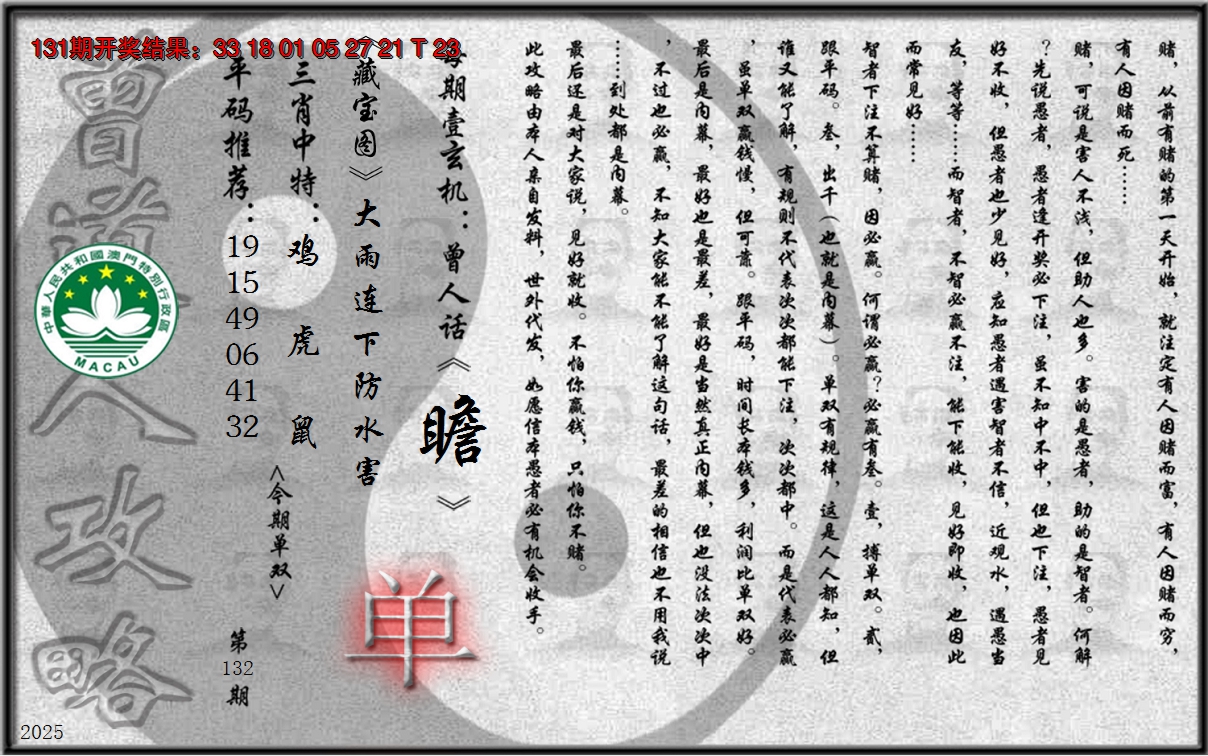 131期开奖结果：33 18 01 05 27 21 T 23
赌，从前有赌的第一天开始，就注定有人因赌而富，有人因赌而穷，
有人因赌而死……
赌，可说是害人不浅，但助人也多。害的是愚者，助的是智者。何解
？先说愚者，愚者逢开奖必下注，虽不知中不中，但也下注，愚者见
好不收，但愚者也少见好，应知愚者遇害智者不信，近观水，遇愚当
友，等等……而智者，不智必赢不注，能下能收，见好即收，也因此
而常见好……
智者下注不算赌，因必赢。何谓必赢？必赢有叁。壹，搏单双。贰，
跟平码。叁，出千（也就是内幕）。单双有规律，这是人人都知，但
谁又能了解，有规则不代表次次都能下注，次次都中。而是代表必赢
，虽单双赢钱慢，但可靠。跟平码，时间长本钱多，利润比单双好。
最后是内幕，最好也是最差，最好是当然真正内幕，但也没法次次中
，不过也必赢，不知大家能不能了解这句话，最差的相信也不用我说
……到处都是内幕。
最后还是对大家说，见好就收。不怕你赢钱，只怕你不赌。
此攻略由本人亲自发料，世外代发，如愿信本愚者必有机会收手。
每期壹玄机：曾人话《瞻》
《藏宝图》大雨连下防水害
三肖中特：鸡 虎 鼠
平码推荐：19 15 49 06 41 32
<今期单双>
单
第132期
曾道人攻略
中華人民共和國澳門特別行政區
MACAU
2025